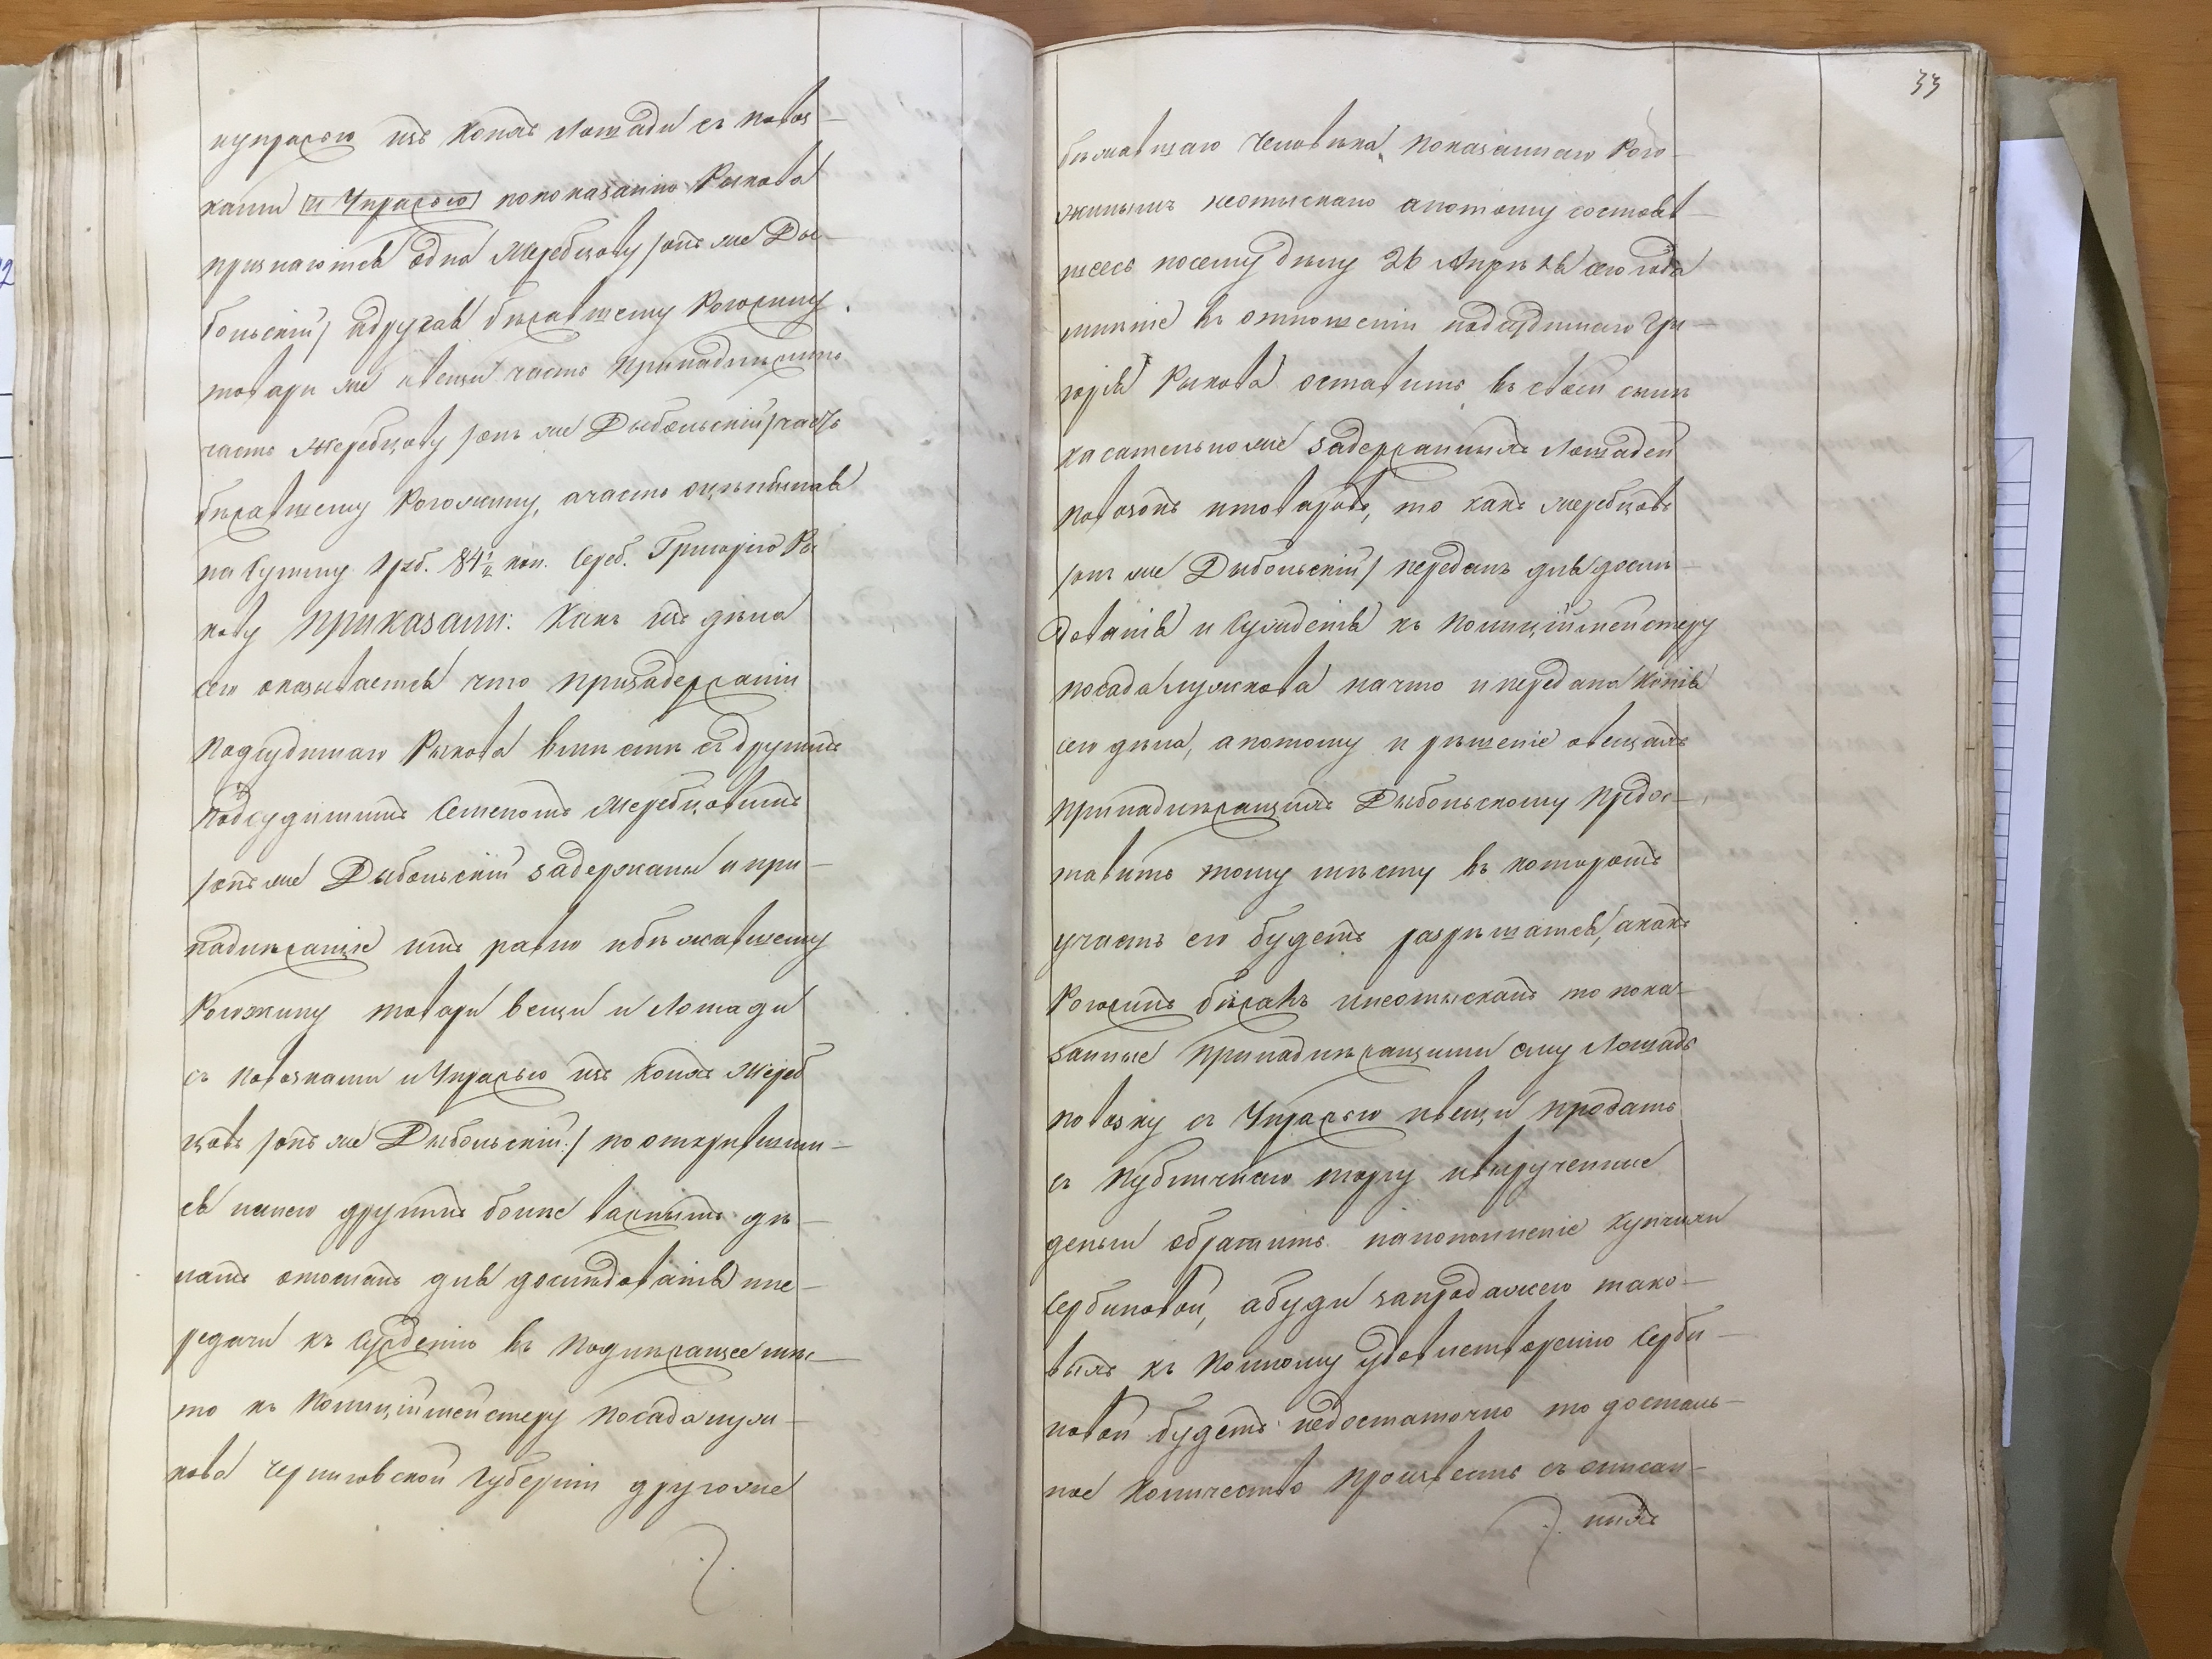 иупражью изъ коихъ Лошади съ повоз-
ками и Упражью попоказанію Рыкова
признаются одна Жеребцову /онъ же Ды-
больскій/ адругая бѣжавшему Рогожину
товары же ивещи часть принадлежитъ
часть Жеребцову /онъ же Дыбольскій/ часть
бѣжавшему Рогожину, ачасть оцѣненная
на Сумму 1 руб. 84½ коп. Сереб. Григорію Ры-
кову приказали: Какъ изъ дѣла
сего оказывается что призадержаніи
подсудимаго Рыкова вмѣстѣ съ другимъ
подсудимымъ Семеномъ Жеребцовымъ
/онъ же Дыбольскій задержаны и при-
надлежащіе имъ равно ибѣжавшему
Рогожину товары вещи и Лошади
съ повозками и Упражью изъ коихъ Жереб
цовъ /онъ же Дыбольскій:/ по открывшим-
ся нанего другимъ болѣе важнымъ дѣ-
ламъ отосланъ для дослѣдованія ипе-
редачи къ Сужденію въ подлежащее мѣс-
то къ Полиціймейстеру посада Лужи-
кова Черниговской Губерніи другоже
33
бѣжавшаго Человѣка, показаннаго Рого-
жинымъ неотыскано апотому состояв-
шееся посему дѣлу 26 Апрѣля сего года
мнѣніе въ отношеніи подсудимаго Гри-
горія Рыкова оставить въ своей силѣ
касательноже задержанныхъ Лошадей
повозокъ итоваровъ, то какъ Жеребцовъ
/онъ же Дыбольскій/ переданъ для дослѣ-
дованія и Сужденія къ Полиціймейстеру
посада Лужкова начто и передана копія
сего дѣла, апотому и рѣшеніе овещахъ
принадлежащихъ Дыбольскому предос-
тавить тому мѣсту въ которомъ
участь его будетъ разрѣшаться, акакъ
Рогожинъ бѣжалъ инеотысканъ то пока-
занные принадлежащими ему Лошадь
повозку съ Упражью ивещи продать
съ публичнаго торгу ивырученные
деньги обратить напополненіе Купчихи
Сербиновой, абуди запродажею тако-
выхъ къ полному удовлетворенію Серби-
новой будетъ недостаточно то досталь-
ное Количество произвесть съ описан-
ныхъ